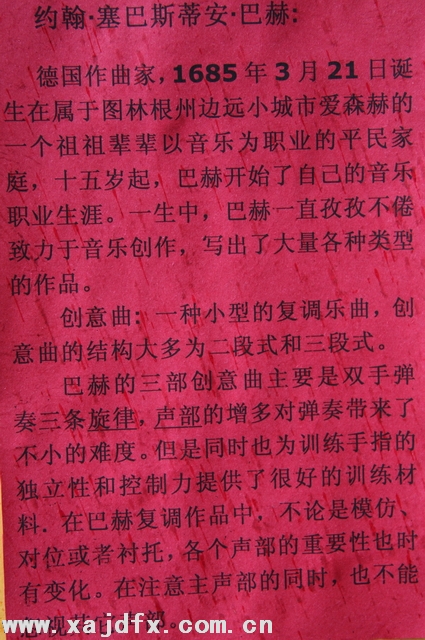 约翰·塞巴斯蒂安·巴赫:
德国作曲家，1685 年 3 月 21 日诞
生在属于图林根州边远小城市爱森赫的
一个祖祖辈辈以音乐为职业的平民家
庭，十五岁起，巴赫开始了自己的音乐
职业生涯。一生中，巴赫一直孜孜不倦
致力于音乐创作，写出了大量各种类型
的作品。
创意曲: 一种小型的复调乐曲，创
意曲的结构大多为二段式和三段式。
巴赫的三部创意曲主要是双手弹
奏三条旋律，声部的增多对弹奏带来了
不小的难度。但是同时也为训练手指的
独立性和控制力提供了很好的训练材
料．在巴赫复调作品中．不论是模仿、
对位或者衬托，各个声部的重要性也时
有变化。在注意主声部的同时，也不能
部。
www.xajdfx.com.cn